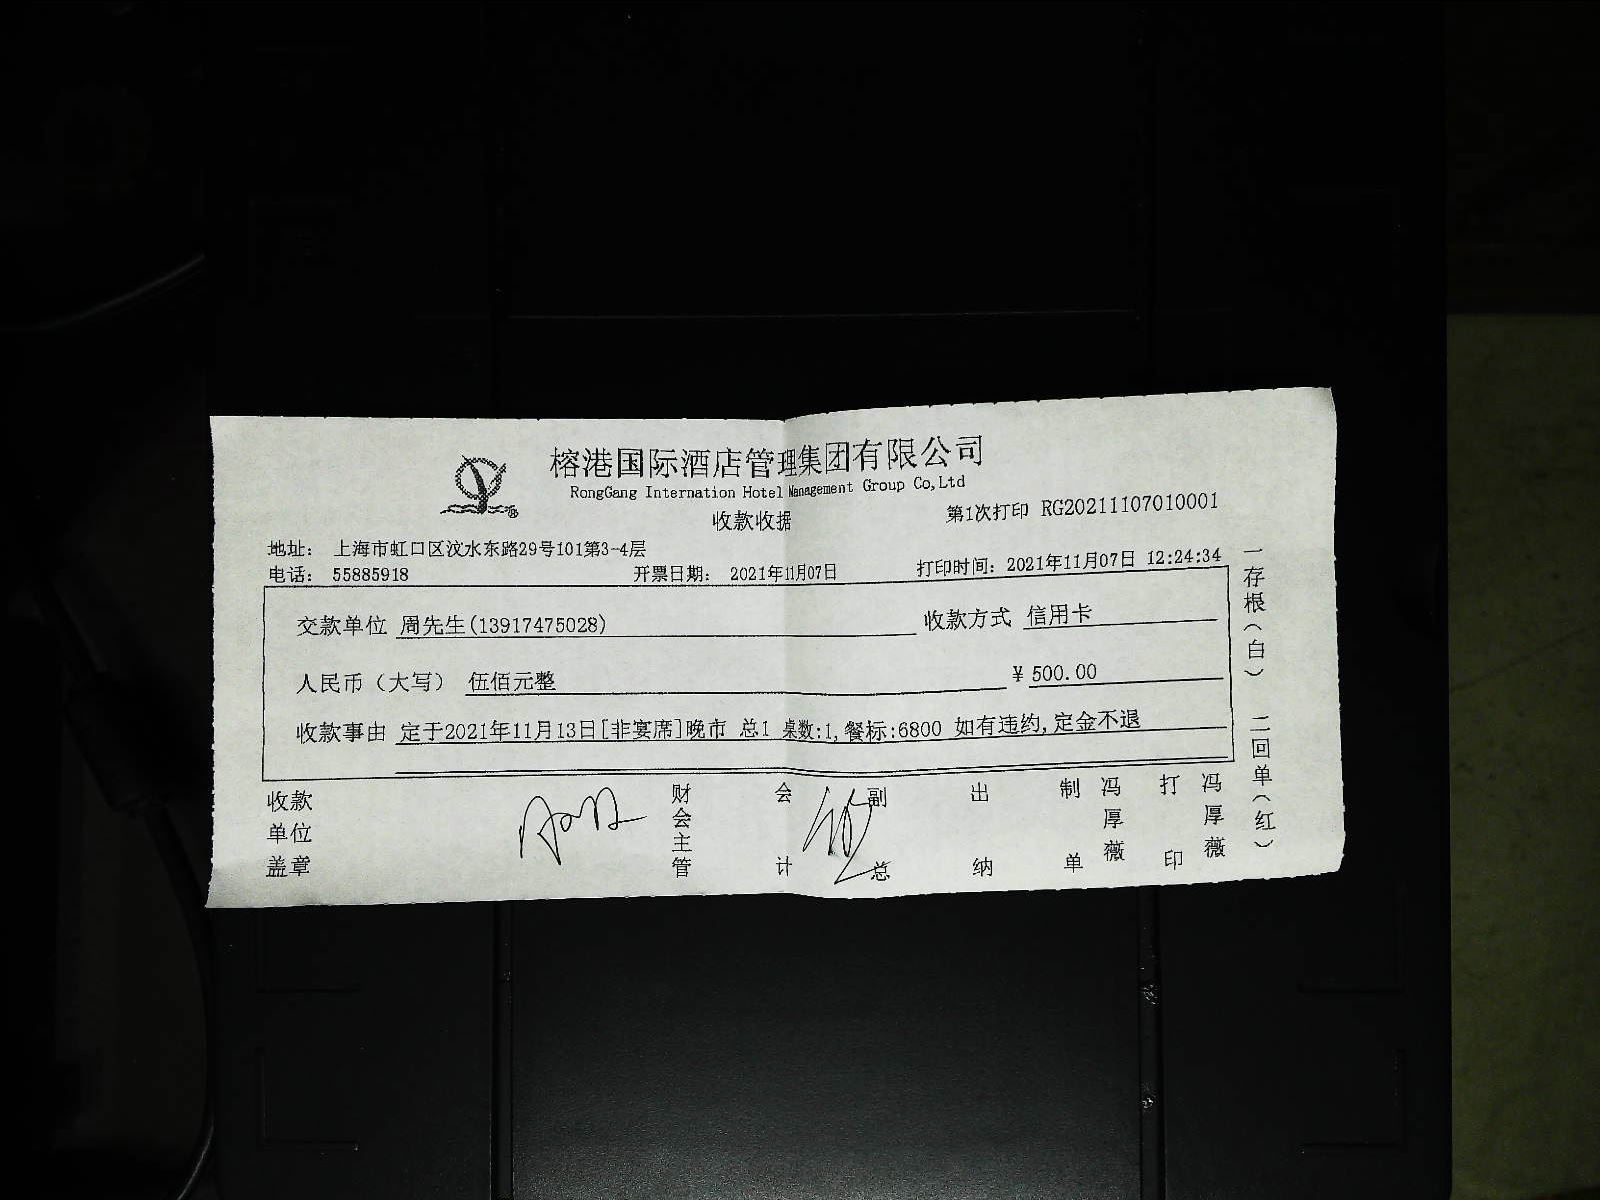 榕港国际酒店管理集团有限公司
RongGang Internation Hotel Management Group Co,Ltd
收款收据
第1次打印 RG20211107010001
地址： 上海市虹口区汶水东路29号101第3-4层
电话： 55885918 开票日期： 2021年11月07日 打印时间：2021年11月07日 12:24:34
交款单位 周先生(13917475028) 收款方式 信用卡
人民币（大写） 伍佰元整 ¥500.00
收款事由 定于2021年11月13日[非宴席]晚市 总1 桌数:1,餐标:6800 如有违约,定金不退
收款单位盖章 财会主管 会计 副总 出纳 制单 冯厚薇 打印 冯厚薇
一存根（白） 二回单（红）